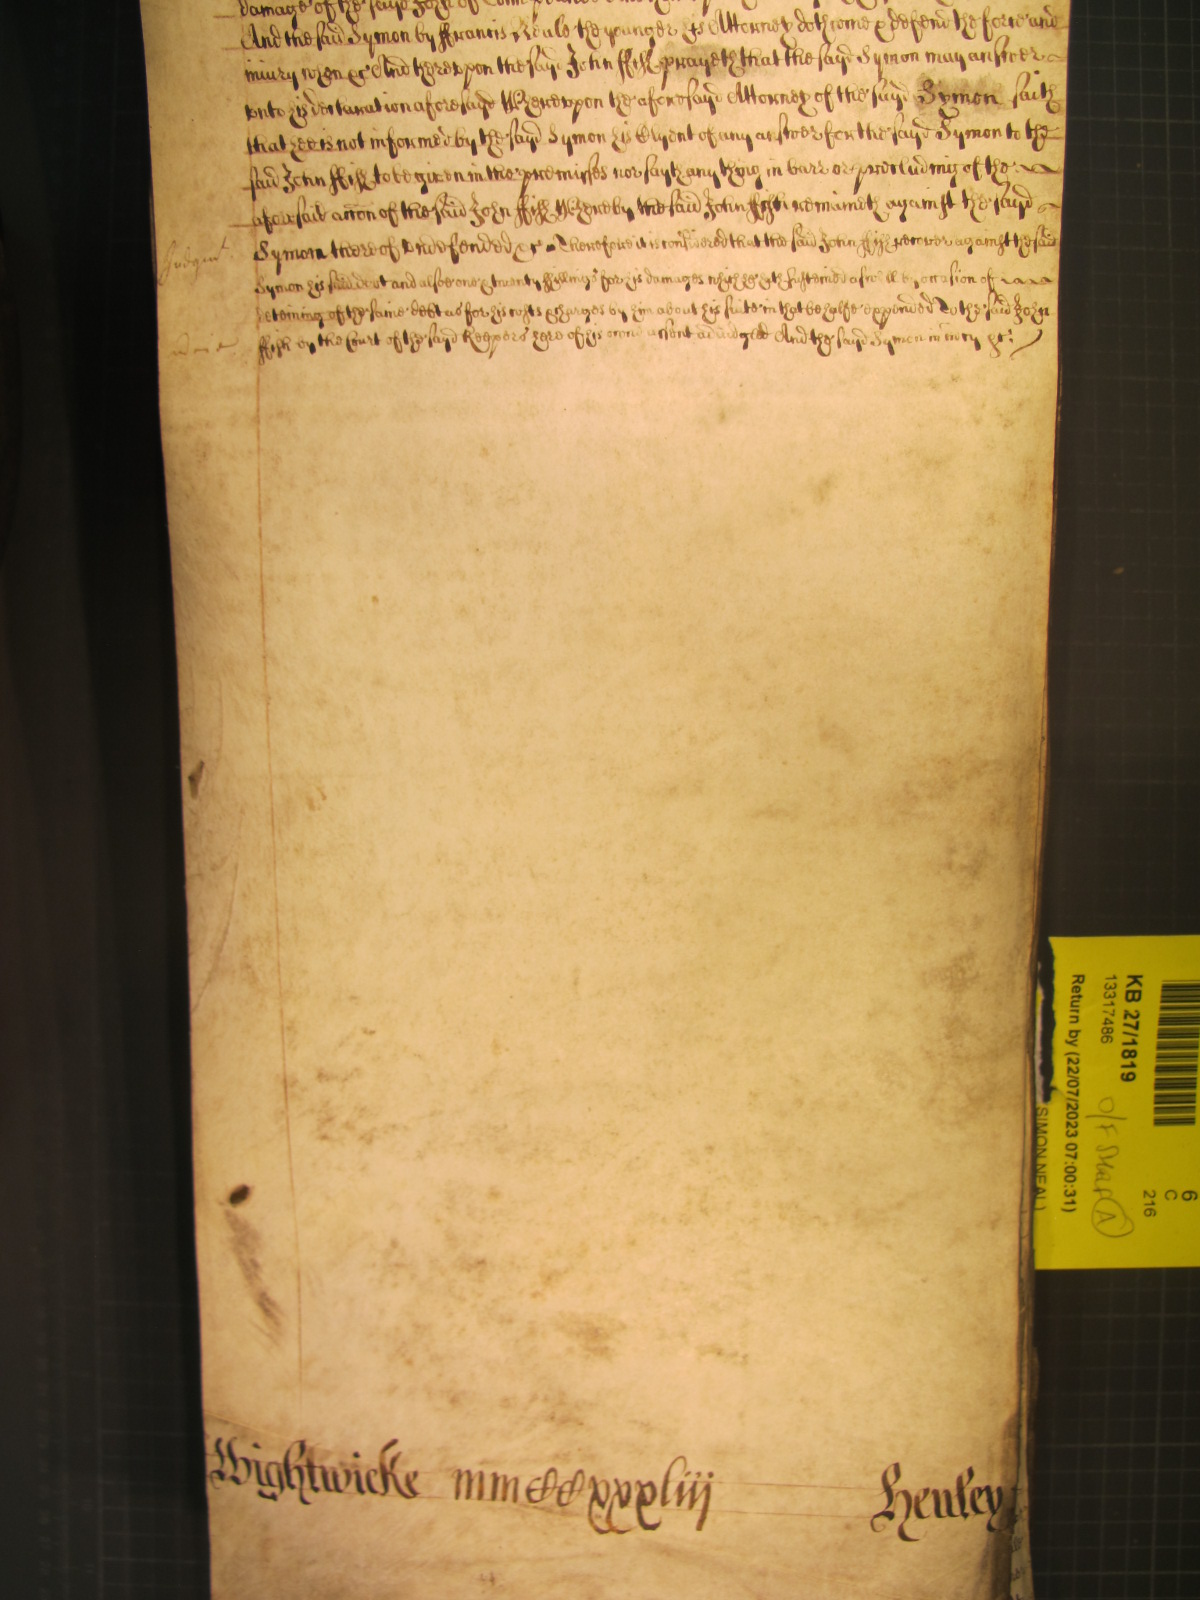 damage of the sayd John of
And the said Symon by ffrancis Neale the younger his Attorney doth come & defend the force and
iniury when &c And hereupon the sayd John ffish prayeth that the sayd Symon may answer
vnto his declaration aforesayd Whereupon the aforesayd Attorney of the sayd Symon saith
that hee is not informed by the sayd Symon his Clyent of any answer for the sayd Symon to the
said John ffish to be given in the premisses nor sayth any thing in barr or precluding of the
aforesaid accon of the said John ffish Whereby the said John ffish remaineth against the sayd
Symon thereof vndefended &c Therefore it is considered that the said John ffish recover against the said
Symon his said debt and alsoe one & twenty shillings for his damages which he hath susteined aswell by occasion of
deteining of the same debt as for his costs & charges by him about his suite in that behalfe expended to the said John
ffish by the Court of the sayd Keepers here of his owne assent adiudged And the sayd Symon in mercy &c
Judgmt
Wightwicke mmccxxxliij Henley
KB 27/1819
13317486
Return by (22/07/2023 07:00:31)
SIMON NEAL
O/F Map A
6
C
216